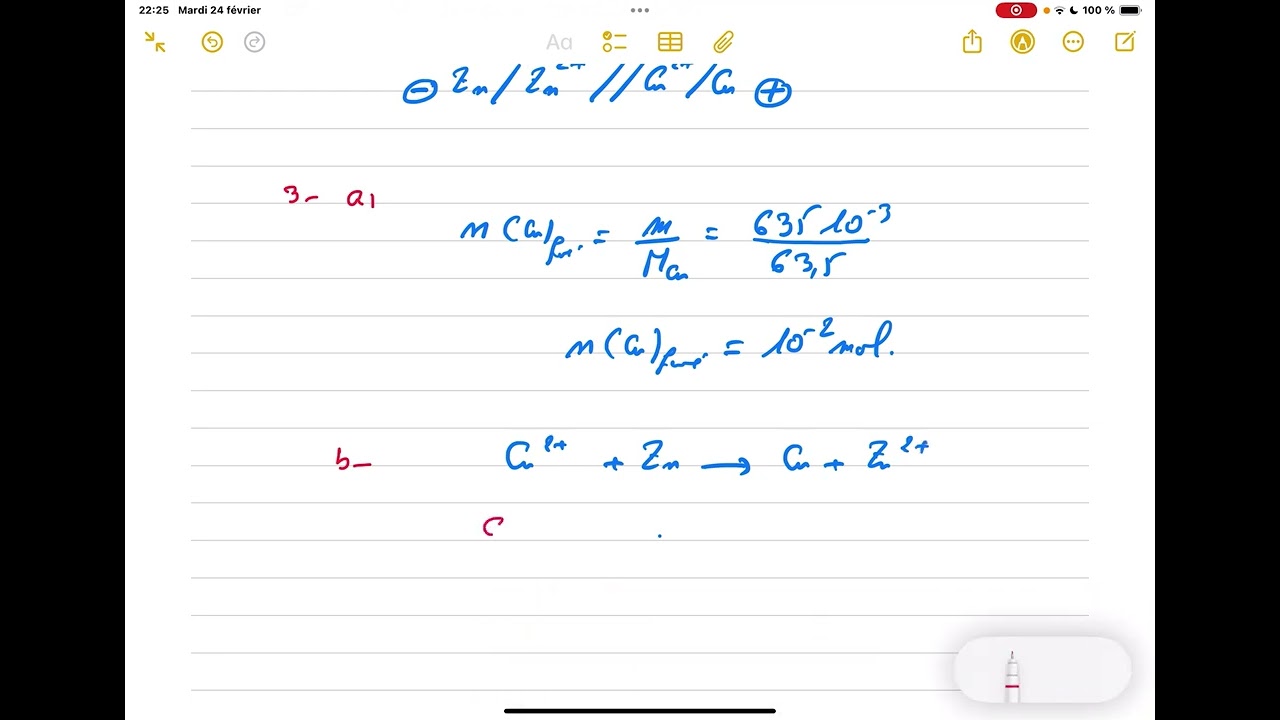 22:25 Mardi 24 février
100 %
Aa
⊖ Zn / Zn²⁺ // Cu²⁺ / Cu ⊕
3- a)
n (Cu) = m / M Cu = 635 10⁻³ / 63,5
n (Cu) = 10⁻² mol.
b- Cu²⁺ + Zn → Cu + Zn²⁺
C